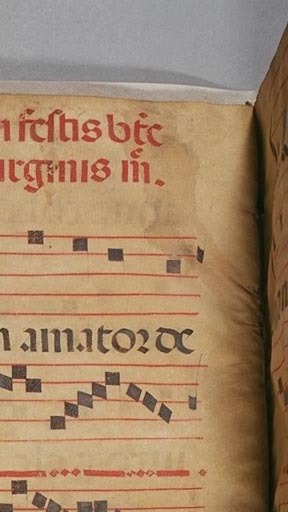 n festis bt̄e
urginis iñ.
n amator de